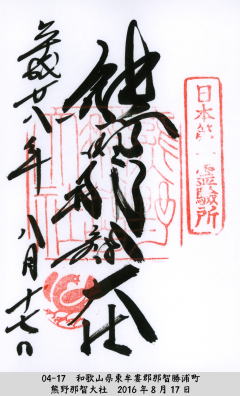 日本第一霊験所
熊野那智大社
平成廿八年八月十七日
04-17 和歌山県東牟婁郡那智勝浦町
熊野那智大社 2016年8月17日